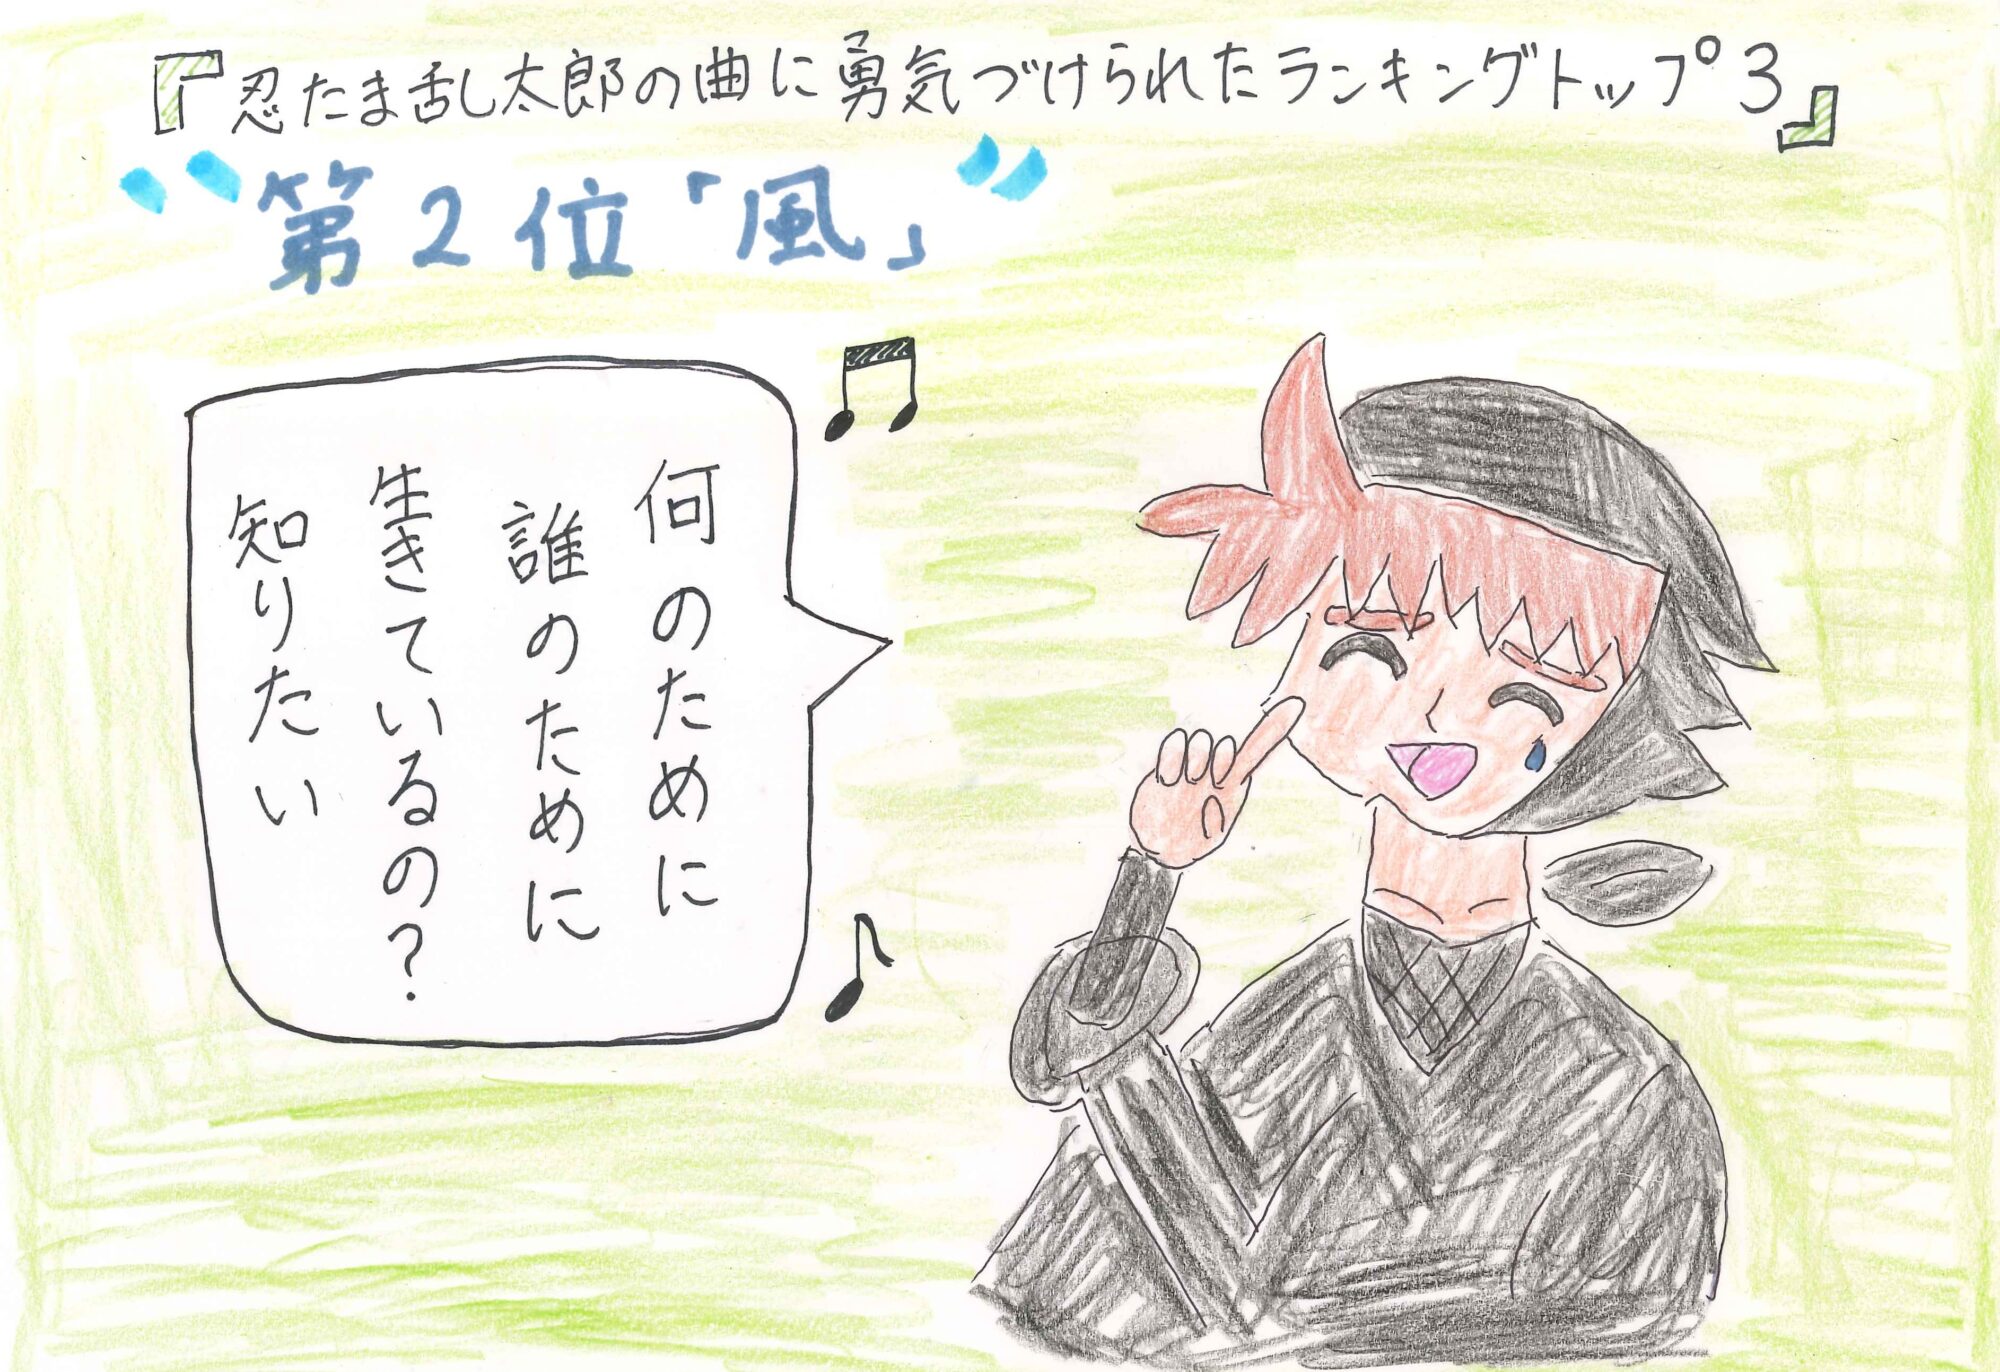 『忍たま乱太郎の曲に勇気づけられたランキングトップ3』
〝第2位「風」〞
何のために
誰のために
生きているの?
知りたい